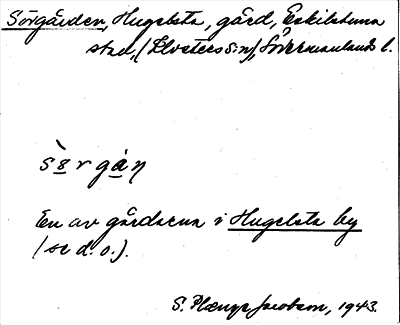 Sörgården, Hugelsta, gård, Eskilstuna
stad, (Klosters sn), Södermanlands l.
sö̀rgán
En av gårdarna i Hugelsta by
(se d. o.).
S. Plænge Jacobson, 1943.